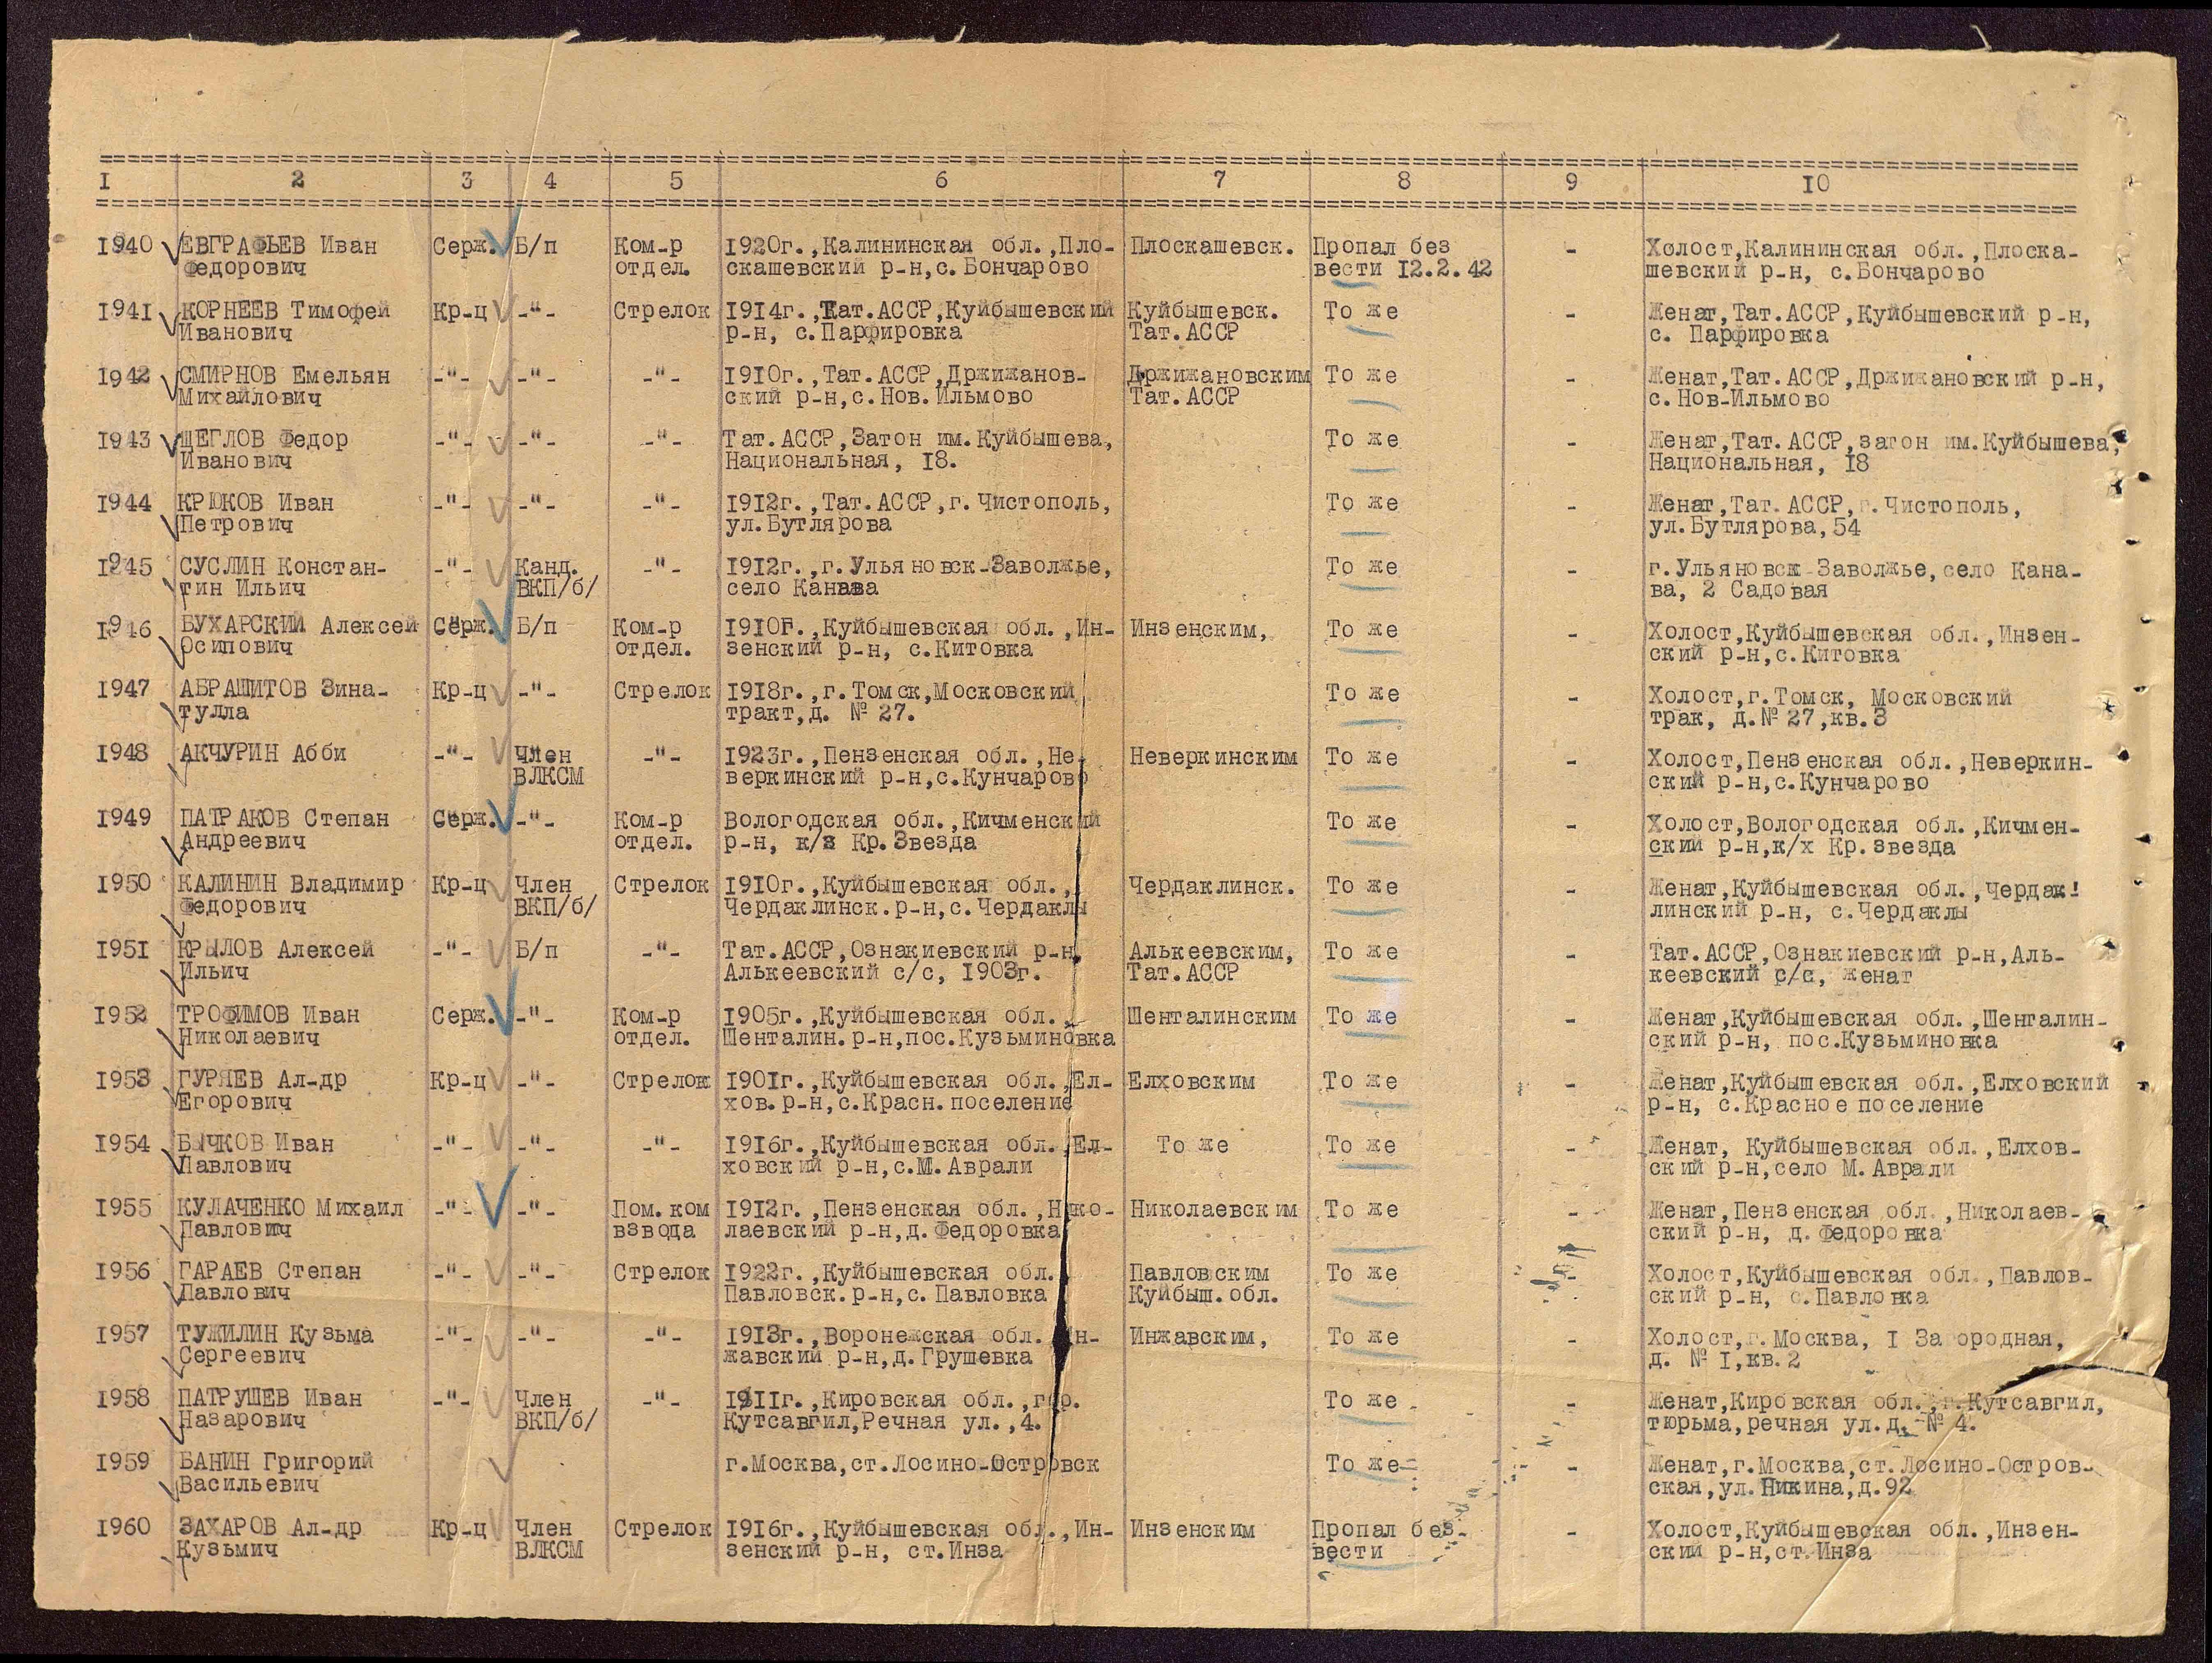 I 2 3 4 5 6 7 8 9 IO
I940 ЕВГРАФЬЕВ Иван Серж. Б/п Ком-р I920г.,Калининская обл.,Пло- Плоскашевск. Пропал без - Холост,Калининская обл.,Плоска-
Федорович отдел. скашевский р-н,с.Бончарово вести I2.2.42 шевский р-н, с.Бончарово
I94I КОРНЕЕВ Тимофей Кр-ц -"- Стрелок I9I4г.,Тат.АССР,Куйбышевский Куйбышевск. То же - Женат,Тат.АССР,Куйбышевский р-н,
Иванович р-н, с.Парфировка Тат.АССР с. Парфировка
I942 СМИРНОВ Емельян -"- -"- -"- I9I0г.,Тат.АССР,Држижанов- Држижановским То же - Женат,Тат.АССР,Држижановский р-н,
Михайлович ский р-н,с.Нов.Ильмово Тат.АССР с.Нов-Ильмово
I943 ЩЕГЛОВ Федор -"- -"- -"- Тат.АССР,Затон им.Куйбышева, То же - Женат,Тат.АССР,затон им.Куйбышева,
Иванович Национальная, I8. Национальная, I8
I944 КРЮКОВ Иван -"- -"- -"- I9I2г.,Тат.АССР,г.Чистополь, То же - Женат,Тат.АССР,г.Чистополь,
Петрович ул.Бутлярова ул.Бутлярова,54
I945 СУСЛИН Констан- -"- Канд. -"- I9I2г.,г.Ульяновск-Заволжье, То же - г.Ульяновск-Заволжье,село Кана-
тин Ильич ВКП/б/ село Канава ва, 2 Садовая
I946 БУХАРСКИЙ Алексей Серж. Б/п Ком-р I9I0г.,Куйбышевская обл.,Ин- Инзенским, То же - Холост,Куйбышевская обл.,Инзен-
Осипович отдел. зенский р-н, с.Китовка ский р-н,с.Китовка
I947 АБРАШИТОВ Зина- Кр-ц -"- Стрелок I9I8г.,г.Томск,Московский То же - Холост,г.Томск, Московский
тулла тракт,д. № 27. трак, д.№ 27,кв.3
I948 АКЧУРИН Абби -"- Член -"- I923г.,Пензенская обл.,Не- Неверкинским То же - Холост,Пензенская обл.,Неверкин-
ВЛКСМ веркинский р-н,с.Кунчарово ский р-н,с.Кунчарово
I949 ПАТРАКОВ Степан Серж. -"- Ком-р Вологодская обл.,Кичменский То же - Холост,Вологодская обл.,Кичмен-
Андреевич отдел. р-н, к/з Кр.Звезда ский р-н,к/х Кр.звезда
I950 КАЛИНИН Владимир Кр-ц Член Стрелок I9I0г.,Куйбышевская обл., Чердаклинск. То же - Женат,Куйбышевская обл.,Чердак!
Федорович ВКП/б/ Чердаклинск.р-н,с.Чердаклы линский р-н, с.Чердаклы
I95I КРЫЛОВ Алексей -"- Б/п -"- Тат.АССР,Ознакиевский р-н, Алькеевским, То же - Тат.АССР,Ознакиевский р-н,Аль-
Ильич Алькеевский с/с, I903г. Тат.АССР кеевский с/с, женат
I952 ТРОФИМОВ Иван Серж. -"- Ком-р I905г.,Куйбышевская обл., Шенталинским То же - Женат,Куйбышевская обл.,Шенталин-
Николаевич отдел. Шенталин.р-н,пос.Кузьминовка ский р-н, пос.Кузьминовка
I953 ГУРЯЕВ Ал-др Кр-ц -"- Стрелок I90Iг.,Куйбышевская обл.,Ел- Елховским То же - Женат,Куйбышевская обл.,Елховский
Егорович хов.р-н,с.Красн.поселение р-н, с.Красное поселение
I954 БЫЧКОВ Иван -"- -"- -"- I9I6г.,Куйбышевская обл.,Ел- То же То же - Женат, Куйбышевская обл.,Елхов-
Павлович ховский р-н,с.М.Аврали ский р-н,село М.Аврали
I955 КУЛАЧЕНКО Михаил -"- -"- Пом.ком I9I2г.,Пензенская обл.,Нико- Николаевским То же - Женат,Пензенская обл.,Николаев-
Павлович взвода лаевский р-н,д.Федоровка ский р-н, д.Федоровка
I956 ГАРАЕВ Степан -"- -"- Стрелок I922г.,Куйбышевская обл. Павловским То же - Холост,Куйбышевская обл.,Павлов-
Павлович Павловск.р-н,с.Павловка Куйбыш.обл. ский р-н, с.Павловка
I957 ТУЖИЛИН Кузьма -"- -"- -"- I9I3г.,Воронежская обл. Ин- Инжавским, То же - Холост,г.Москва, I Загородная,
Сергеевич жавский р-н,д.Грушевка д. № I,кв.2
I958 ПАТРУШЕВ Иван -"- Член -"- I9IIг.,Кировская обл.,гор. То же - Женат,Кировская обл.,г.Кутсавгил,
Назарович ВКП/б/ Кутсавгил,Речная ул.,4. тюрьма,речная ул.д. № 4.
I959 БАНИН Григорий г.Москва,ст.Лосино-Островск То же - Женат,г.Москва,ст.Лосино-Остров-
Васильевич ская,ул.Никина,д.92
I960 ЗАХАРОВ Ал-др Кр-ц Член Стрелок I9I6г.,Куйбышевская обл.,Ин- Инзенским Пропал без- - Холост,Куйбышевская обл.,Инзен-
Кузьмич ВЛКСМ зенский р-н, ст.Инза вести ский р-н,ст.Инза